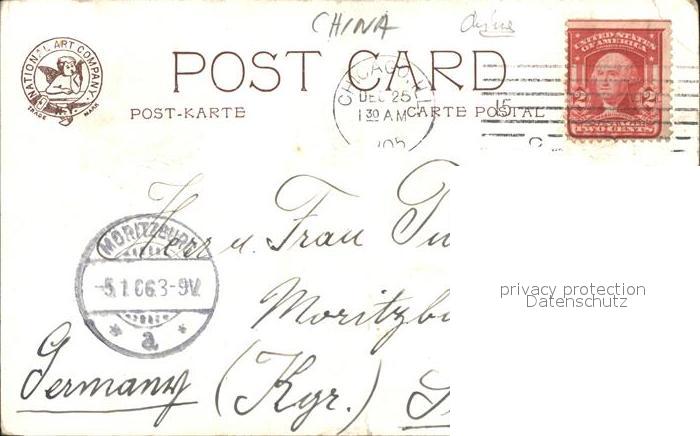 CHINA
NATIONAL ART COMPANY
N.Y.
TRADE MARK
POST CARD
POST-KARTE
CARTE POSTAL
CHICAGO, ILL
DEC 25
1 30 AM
'05
15
UNITED STATES OF AMERICA
2 2
TWO CENTS
Herr u. Frau
MORITZBURG
5.1.06.3-9V.
* a *
Germany (Kgr.)
privacy protection
Datenschutz